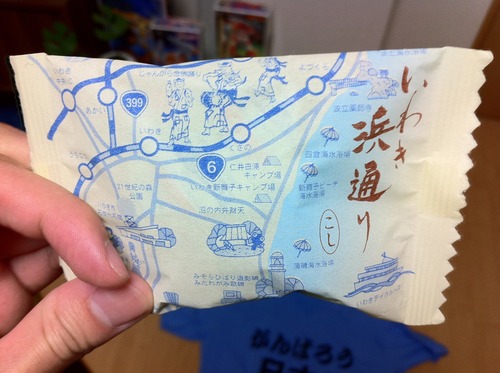 いわき
浜通り
こし
じゃんがら念仏踊り
よつくら
波立海水浴場
波立薬師
399
あかい
いわき
くさの
6
仁井田浦
キャンプ場
いわき新舞子
キャンプ場
四倉海水浴場
新舞子ビーチ
海水浴場
21世紀の森
公園
沼の内弁財天
薄磯海水浴場
みそらひばり遺影碑
みだれがみ歌碑
いわきデイクルーズ
がんばろう